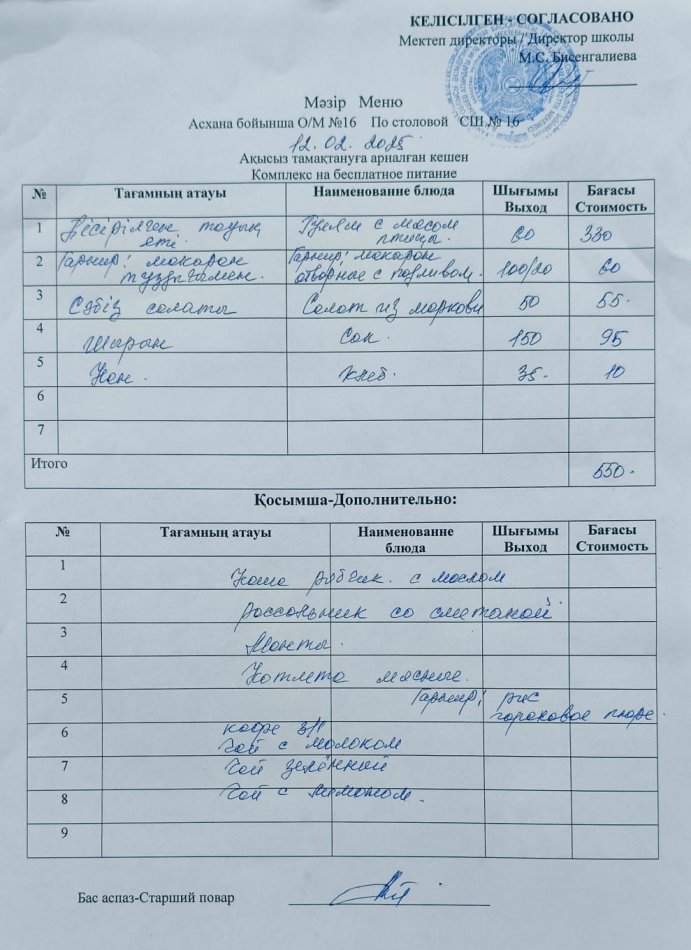 КЕЛІСІЛГЕН - СОГЛАСОВАНО
Мектеп директоры / Директор школы
М.С. Бисенгалиева
Мәзір Меню
Асхана бойынша О/М №16 По столовой СШ № 16
12.02.2025
Ақысыз тамақтануға арналған кешен
Комплекс на бесплатное питание
№ Тағамның атауы Наименование блюда Шығымы Выход Бағасы Стоимость
1 Пісірілген тауық еті. Гуляш с мясом птицы. 60 330
2 Гарнир: макарон тұздығымен. Гарнир: макарон отворное с подливом. 100/20 60
3 Сәбіз салаты Салат из моркови 50 55.
4 Шырын Сок. 150 95
5 Нан. Хлеб. 35. 10
6
7
Итого 550.
Қосымша-Дополнительно:
№ Тағамның атауы Наименование блюда Шығымы Выход Бағасы Стоимость
1 Каша с маслом
2 Рассольник со сметаной
3 Манты.
4 Котлета мясные.
5 Гарнир: рис
гороховое пюре.
6 кофе 3/1
чай с молоком
7 Чай зелённый
8 Чай с лимоном.
9
Бас аспаз-Старший повар